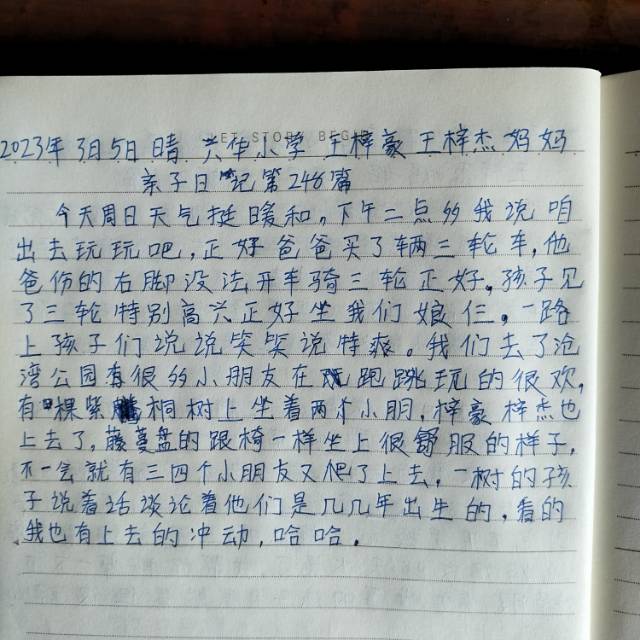 YET STORY BEGIN
2023年3月5日 晴 兴华小学 王梓豪 王梓杰妈妈
亲子日记第248篇
今天周日天气挺暖和。下午二点多我说咱
出去玩玩吧,正好爸爸买了辆三轮车,他
爸伤的右脚没法开车骑三轮正好。孩子见
了三轮特别高兴正好坐我们娘仨。一路
上孩子们说说笑笑说特爽。我们去了沧
湾公园有很多小朋友在跑跳玩的很欢,
有一棵紫桐树上坐着两个小朋,梓豪梓杰也
上去了,藤蔓盘的跟椅一样坐上很舒服的样子,
不一会就有三四个小朋友又爬了上去,一树的孩
子说着话谈论着他们是几几年出生的,看的
我也有上去的冲动,哈哈。